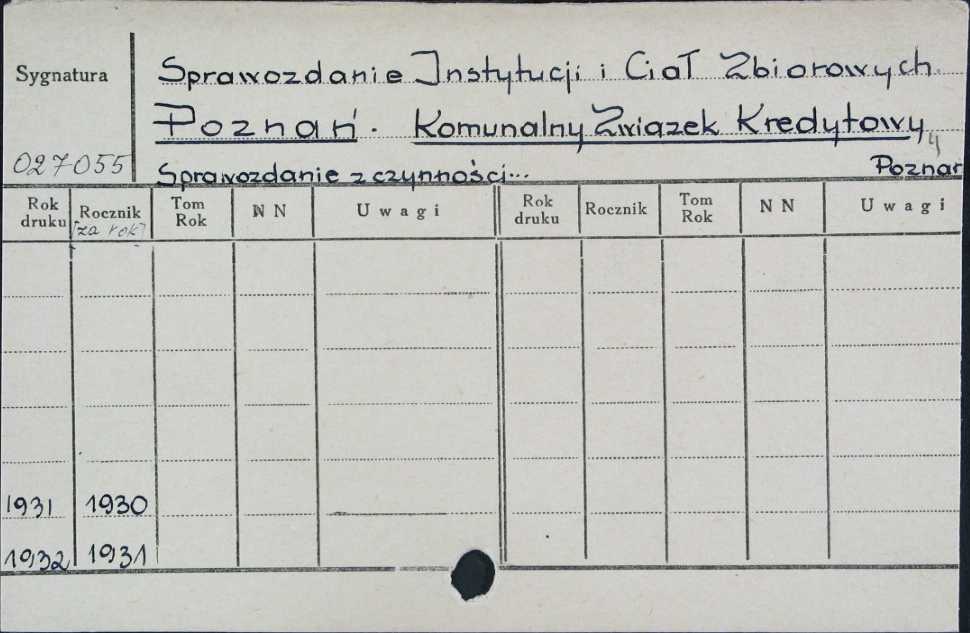 Sygnatura
Sprawozdanie Instytucji i Ciał Zbiorowych.
Poznań. Komunalny Związek Kredytowy
4
027055
Sprawozdanie z czynności... Poznań
Rok druku Rocznik [za rok] Tom Rok NN Uwagi Rok druku Rocznik Tom Rok NN Uwagi
1931 1930
1932 1931